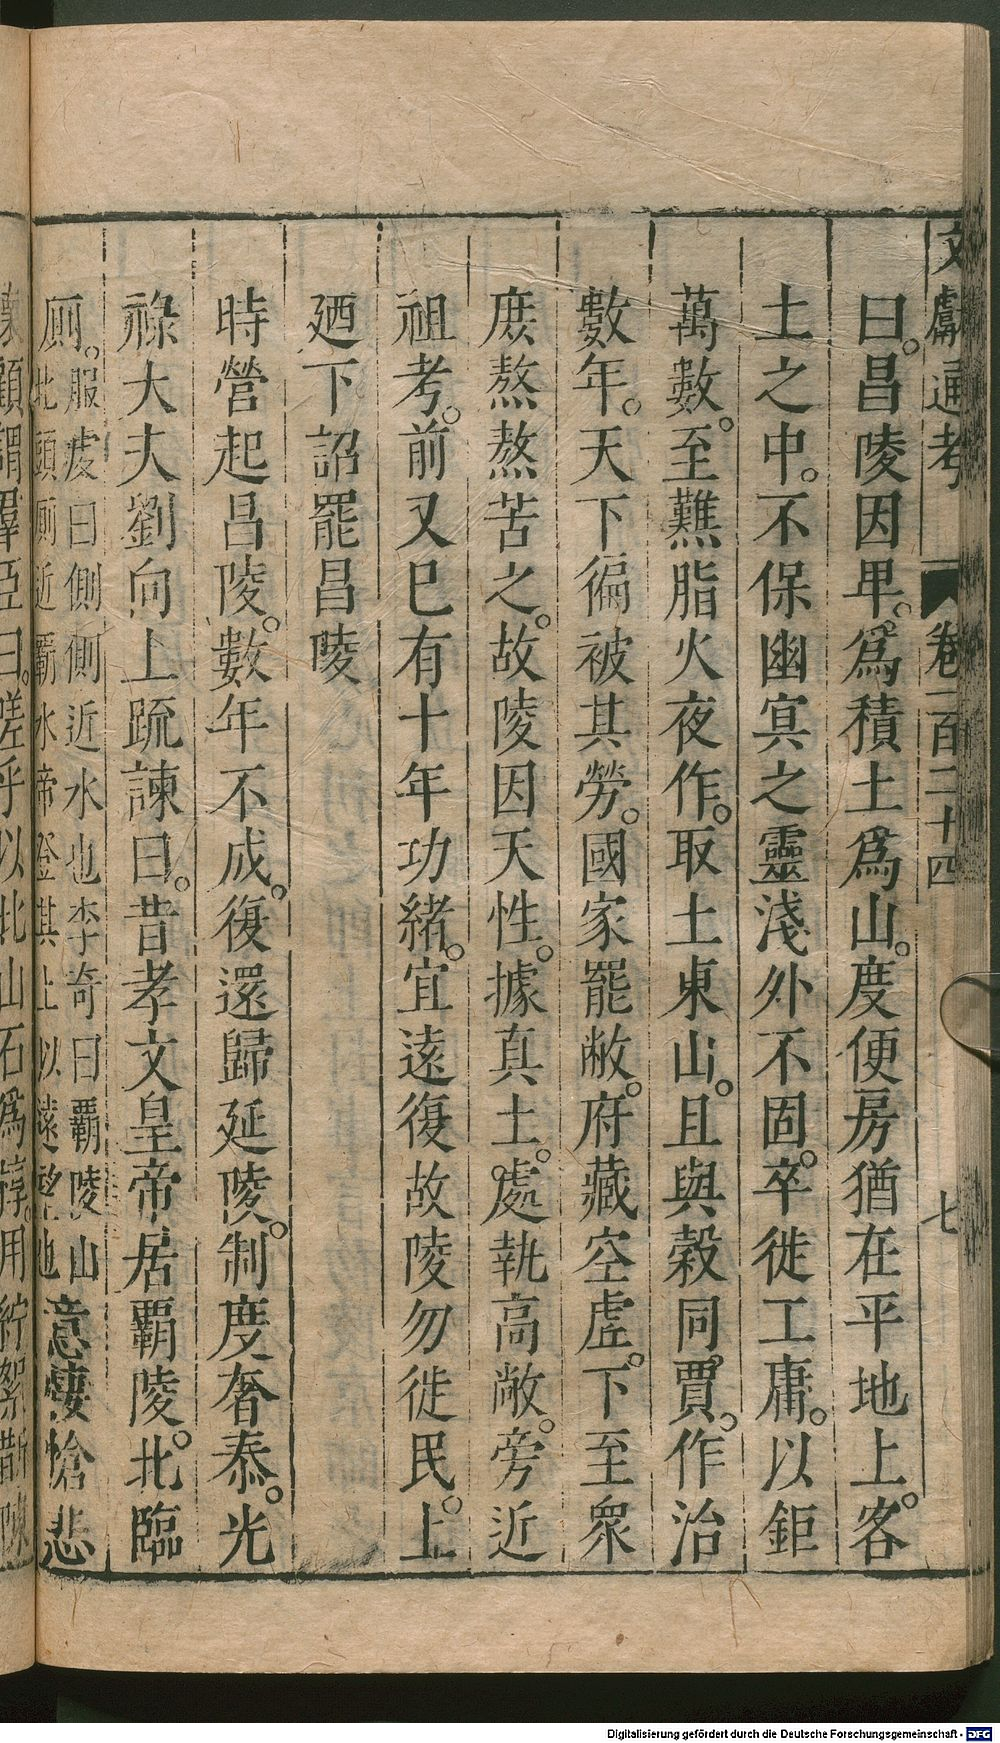 文獻通考 卷一百二十四 七
曰。昌陵因卑。爲積土爲山。度便房猶在平地上。客
土之中。不保幽冥之靈淺外不固。卒徙工庸。以鉅
萬數。至難脂火夜作。取土東山。且與榖同賈。作治
數年。天下徧被其勞。國家罷敝。府藏空虛。下至衆
庶熬熬苦之。故陵因天性。據真土。處執高敞。旁近
祖考。前又已有十年功緒。宜遠復故陵勿徙民。上
廼下詔罷昌陵
時營起昌陵。數年不成。復還歸延陵。制度奢泰。光
祿大夫劉向上疏諫曰。昔孝文皇帝居覇陵。北臨
厠。服虔曰側側近水也李奇曰覇陵山北頭厠近覇水帝登其上以遠望也意悽愴悲
懷顧謂羣臣曰。嗟乎以北山石爲椁。用紵絮斮陳
Digitalisierung gefördert durch die Deutsche Forschungsgemeinschaft - DFG